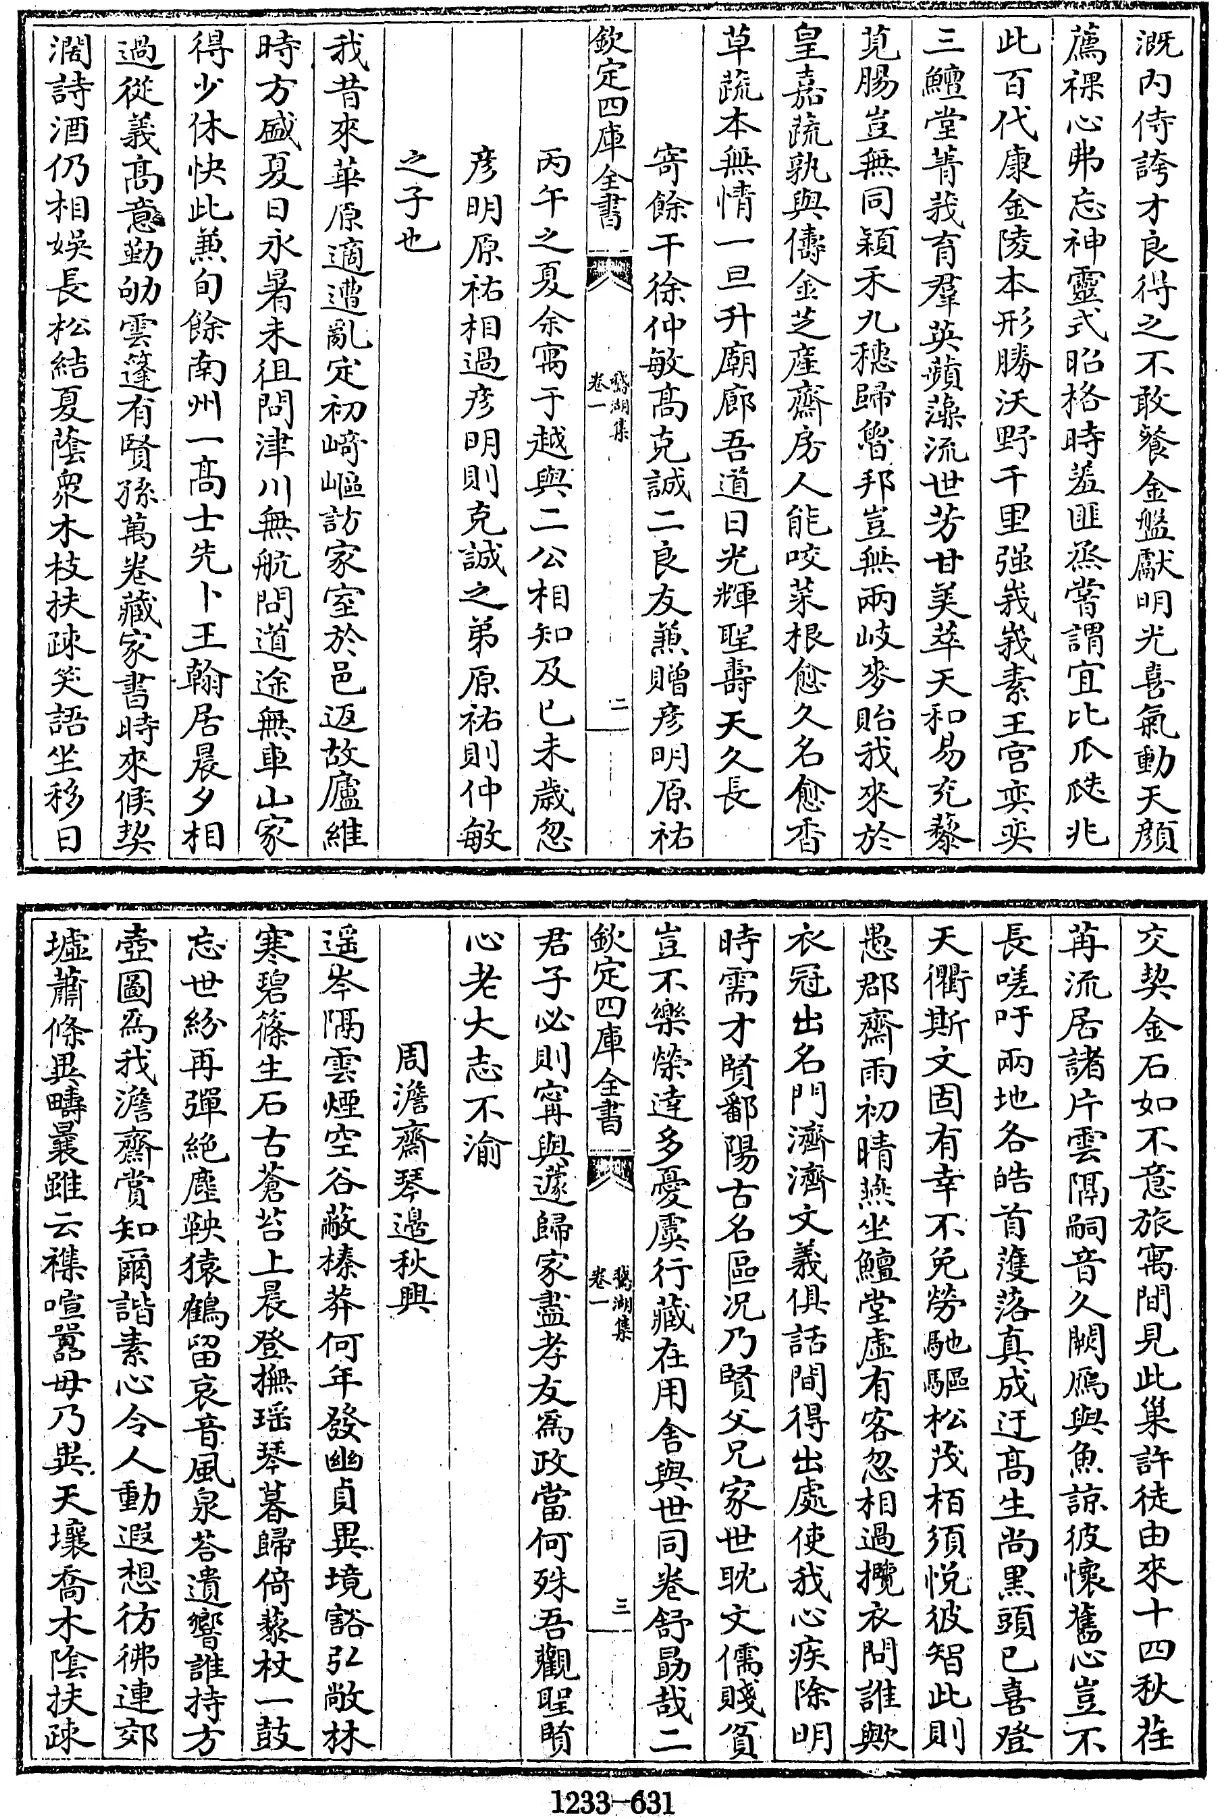 溉内侍誇才良得之不敢餐金盤獻明光喜氣動天顔
薦祼心弗忘神靈式昭格時羞匪烝嘗謂宜比瓜瓞兆
此百代康金陵本形勝沃野千里强峩峩素王宫奕奕
三鱣堂菁莪育羣英蘋藻流世芳甘美萃天和易充藜
莧腸豈無同穎禾九穗歸魯邦豈無兩岐麥貽我來於
皇嘉蔬孰與儔金芝産齋房人能咬菜根愈久名愈香
草蔬本無情一旦升廟廊吾道日光輝聖壽天久長
寄餘干徐仲敏髙克誠二良友兼贈彦明原祐
欽定四庫全書
鵝湖集
卷一
二
丙午之夏余寓于越與二公相知及己未歲忽
彦明原祐相過彦明則克誠之弟原祐則仲敏
之子也
我昔來華原適遭亂定初﨑嶇訪家室於邑返故廬維
時方盛夏日永暑未徂問津川無航問道途無車山家
得少休快此兼旬餘南州一髙士先卜王翰居晨夕相
過從義髙意勤劬雲篷有賢孫萬卷藏家書時來候契
濶詩酒仍相娱長松結夏蔭衆木枝扶疎笑語坐移日
交契金石如不意旅寓間見此巢許徒由來十四秋荏
苒流居諸片雲隔嗣音久闕鴈與魚諒彼懷舊心豈不
長嗟吁兩地各皓首濩落真成迂髙生尚黒頭已喜登
天衢斯文固有幸不免勞馳驅松茂栢須恱彼智此則
愚郡齋雨初晴燕坐鱣堂虚有客忽相過攬衣問誰歟
衣冠出名門濟濟文義俱話間得出處使我心疾除明
時需才賢鄱陽古名區况乃賢父兄家世耽文儒賤貧
豈不樂榮達多憂虞行藏在用舍與世同卷舒勗哉二
欽定四庫全書
鵝湖集
卷一
三
君子必則寗與蘧歸家盡孝友爲政當何殊吾觀聖賢
心老大志不渝
周澹齋琴邉秋興
遥岑隔雲煙空谷蔽榛莽何年發幽貞異境豁弘敞林
寒碧篠生石古蒼苔上晨登撫瑶琴暮歸倚藜杖一鼓
忘世紛再彈絶塵鞅猿鶴留哀音風泉荅遺響誰持方
壺圖爲我澹齋賞知爾諧素心令人動遐想彷彿連郊
墟蕭條異疇曩雖云襍喧囂毋乃異天壤喬木陰扶疎
1233-631